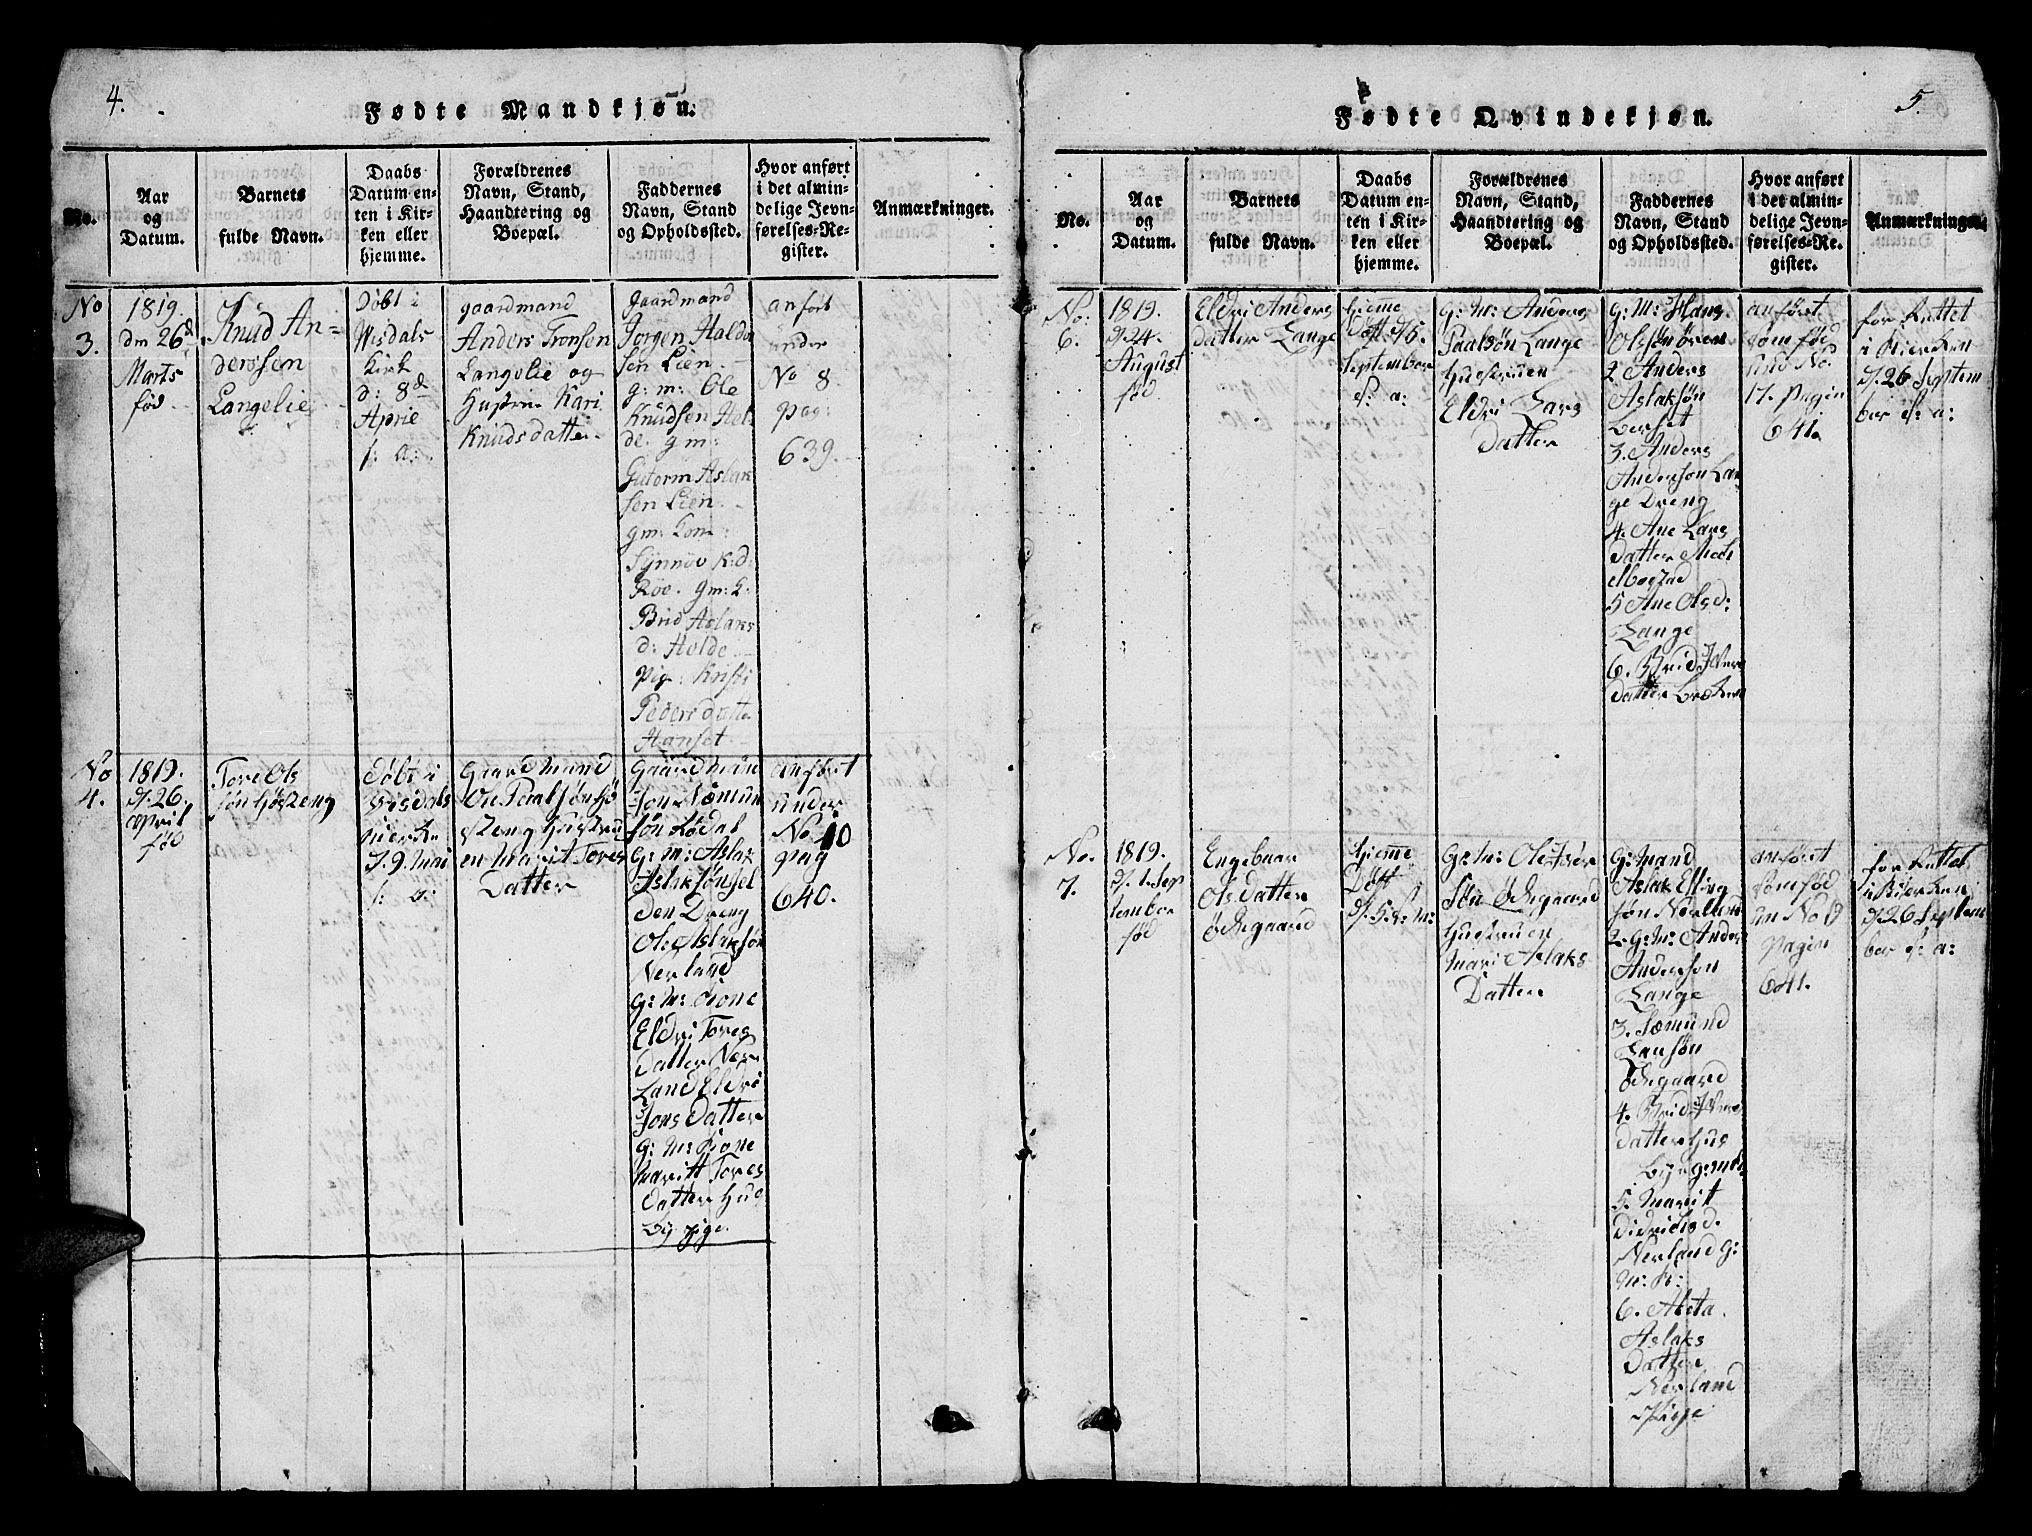 4.
Fødte Mandkjøn.
No.
Aar
og
Datum.
Barnets
fulde Navn.
Daabs
Datum en-
ten i Kir-
ken eller
hjemme.
Forældrenes
Navn, Stand,
Haandtering og
Boepæl.
Faddernes
Navn, Stand
og Opholdssted.
Hvor anført
i det almin-
delige Jevn-
førelses-Re-
gister.
Anmærkninger.
No
3.
1819.
dn 26d
Marts
fød
Knud An-
derssen
Langelie
Døbt i
Wisdals
Kirk
d: 8d
Aprie
s: a:
gaardmand
Anders Tronsen
Langelie og
Hustru Kari
Knudsdatter
gaardmand
Jorgen Haldo
sen Lien
g: m: Ole
Knudsen Hol-
de. gm:
Gutorm Aslak
sen Lien
gm: kone
Synnøv K:d
Röe. gm: k:
Brid Aslaks
d: Holde
pig: Kristi
Pedersdatte
Hanset
anført
under
No 8
pag:
639.
No
4.
1819.
d. 26
april
fød
Tore Ols
søn
Døbt i
Wisdals
Kierke
d 9 Mai
s: a:
Gaardmand
Ole Paalsøn
Hustru
en Marit Tores
Datter
Gaardmand
Jon Sæmun
søn Rødal
G: M: Aslak
Aslaksøn
den Dreng
Ole Aslaksøn
Nerland
G: M: kone
Eldri Tores
Datter Ner
Land Eldri
Jons Datter
G: M: kone
Maritt Tores
Datter Hus
by pige
anført
under
No. 10
pag
640.
5.
Fødte Qvindekjøn.
No.
Aar
og
Datum.
Barnets
fulde Navn.
Daabs
Datum en-
ten i Kir-
ken eller
hjemme.
Forældrenes
Navn, Stand,
Haandtering og
Boepæl.
Faddernes
Navn, Stand
og Opholdssted.
Hvor anført
i det almin-
delige Jevn-
førelses-Re-
gister.
Anmærkninger.
No:
6.
1819.
d. 24
August
fød
Eldri Anders
datter Lange
hjeme
Døft d. 5.
September
s: a:
G: M: Anders
Paalsøn Lange
Hustruen
Eldri Lars
Datter
G: M: Hans
Olssøn Øren
2 Anders
Aslaksøn
Berset
3. Anders
Andersøn Lan
ge Dreng
4. Ane Lars
Datter
5 Ane Olsd:
Lange
6. Brid Iver
Datter
anført
som fød
und No.
17. pagin
641.
forRettet
i Kierken
d. 26 Septem
ber s: a:
No.
7.
1819.
d. 1 Sep
tember
fød
Engebaar
Olsdatter
Ødegaard
hjeme
Døft
d. 5. s: M:
G: M: Ole
Søn Ødegaard
Hustruen
Mari Aslaks
Datter
G: Mand
Aslak Elling
søn Nerland
2. G: M: Anders
Andersøn
Lange
3. Sæmund
Ødegaard
4. Brid Ivers
Datter Hus
by
5. Marit
Didriks d.
Nerland G:
M: k:
6.
Aslaks
Datter
Nerland
Pige
anført
som fød
un No
pagin
641.
forRettet
i Kierken
d. 26 Septem
ber s: a: